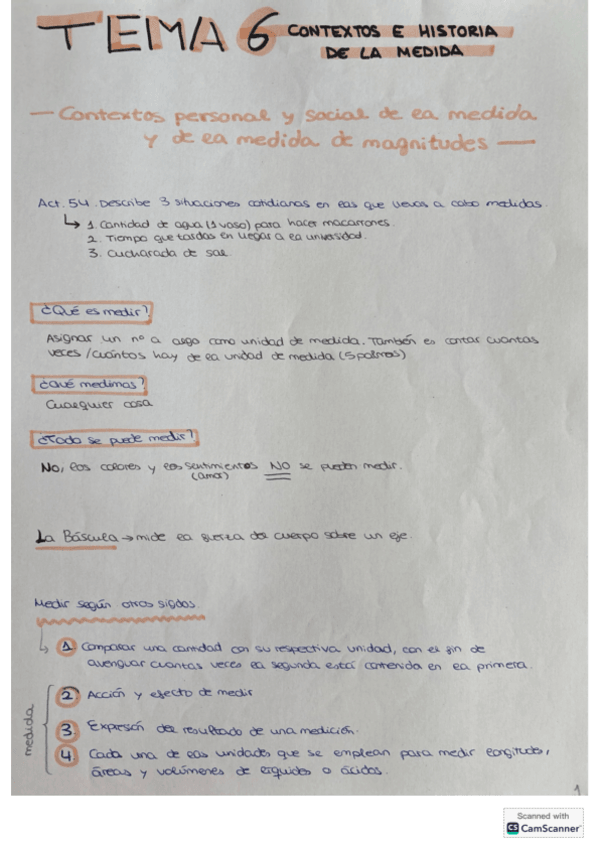 TEMA 6 CONTEXTOS E HISTORIA
DE LA MEDIDA
— Contextos personal y social de la medida
y de la medida de magnitudes —
Act. 54. Describe 3 situaciones cotidianas en las que llevas a cabo medidas.
↳ 1. Cantidad de agua (1 vaso) para hacer macarrones.
2. Tiempo que tardas en llegar a la universidad.
3. Cucharada de sal.
¿Qué es medir?
Asignar un nº a algo como unidad de medida. También es contar cuantas
veces / cuántos hay de la unidad de medida (5 palmos)
¿Qué medimos?
Cualquier cosa
¿Todo se puede medir?
No, los colores y los sentimientos NO se pueden medir.
(amor)
La Báscula → mide la fuerza del cuerpo sobre un eje.
Medir según otros siglos
↳ 1 Comparar una cantidad con su respectiva unidad, con el fin de
averiguar cuantas veces la segunda está contenida en la primera.
medida
2 Acción y efecto de medir
3 Expresión del resultado de una medición.
4 Cada una de las unidades que se emplean para medir longitudes,
áreas y volúmenes de líquidos o ácidos.
1
Scanned with
CS CamScanner